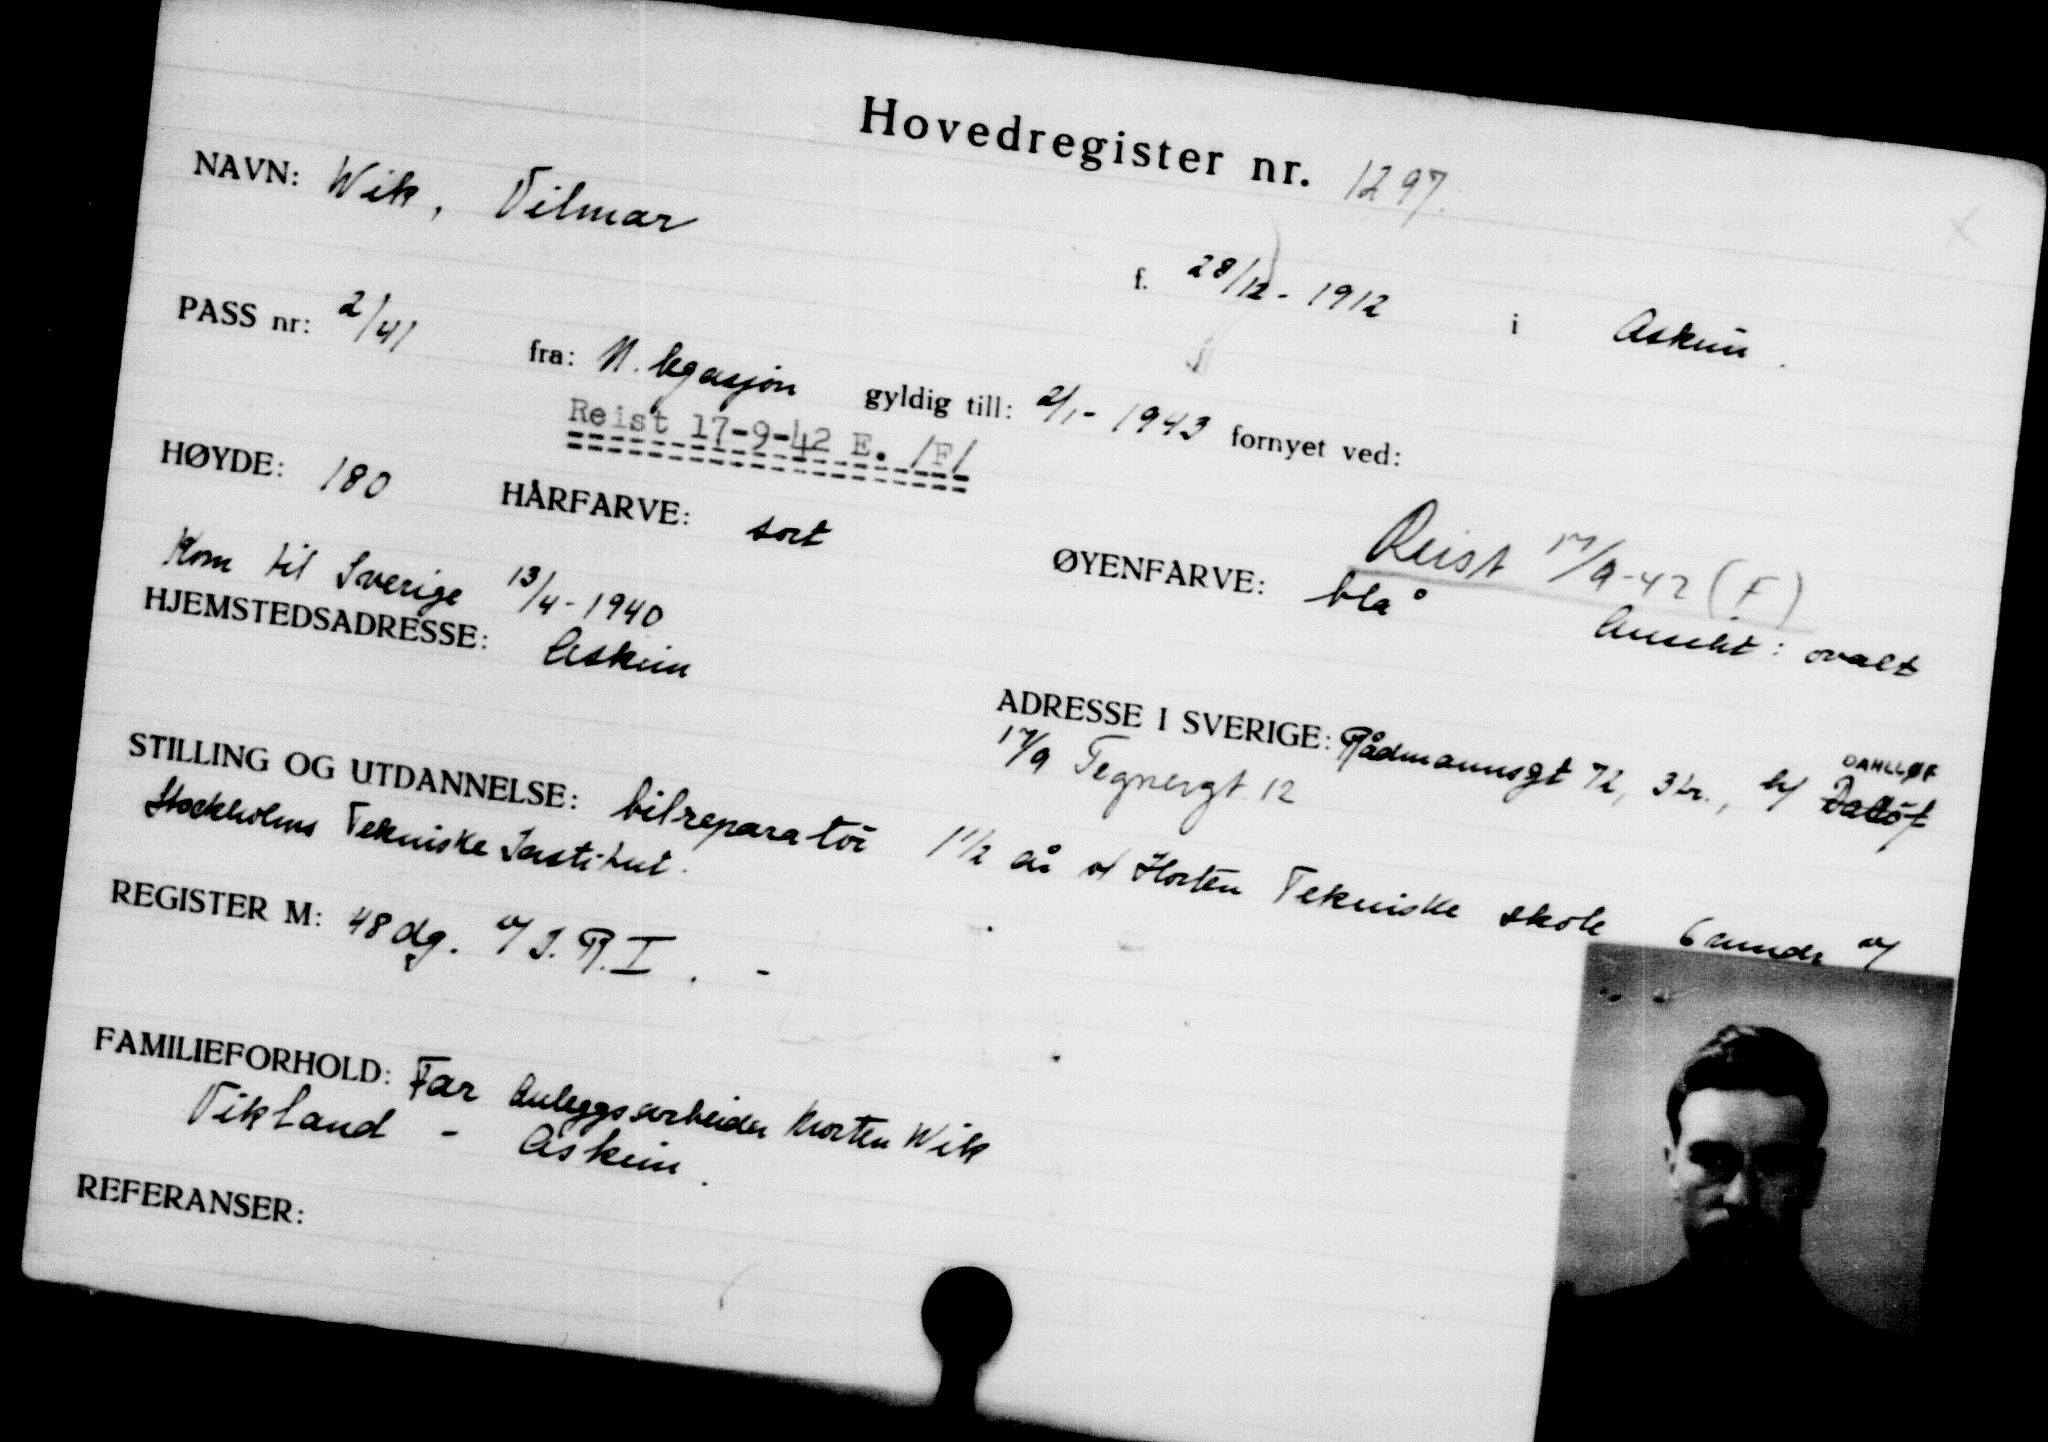 Hovedregister nr. 1297.
NAVN: Wik, Vilmar
f. 28/12 - 1912 i Askim.
PASS nr: 2/41 fra: N. legasjon gyldig till: 2/1 - 1943 fornyet ved:
Reist 17-9-42 E. /F/
HØYDE: 180 HÅRFARVE: sort
Reist 17/9-42 (F)
ØYENFARVE: blå Ansikt: ovalt
Kom til Sverige 13/4 - 1940
HJEMSTEDSADRESSE: Askim
ADRESSE I SVERIGE: Rådmannsgt 72, 3 tr., b/ Dallöf
DAHLLØF
17/9 Tegnergt. 12
STILLING OG UTDANNELSE: bilreparatör 1 1/2 år v/ Horten Tekniske skole 6 mndr v/
Stockholms Tekniske Institut.
REGISTER M: 48 dg. v/ I.R.I. -
FAMILIEFORHOLD: Far Anleggsarbeider Morten Wik
Vikland - Askim.
REFERANSER: